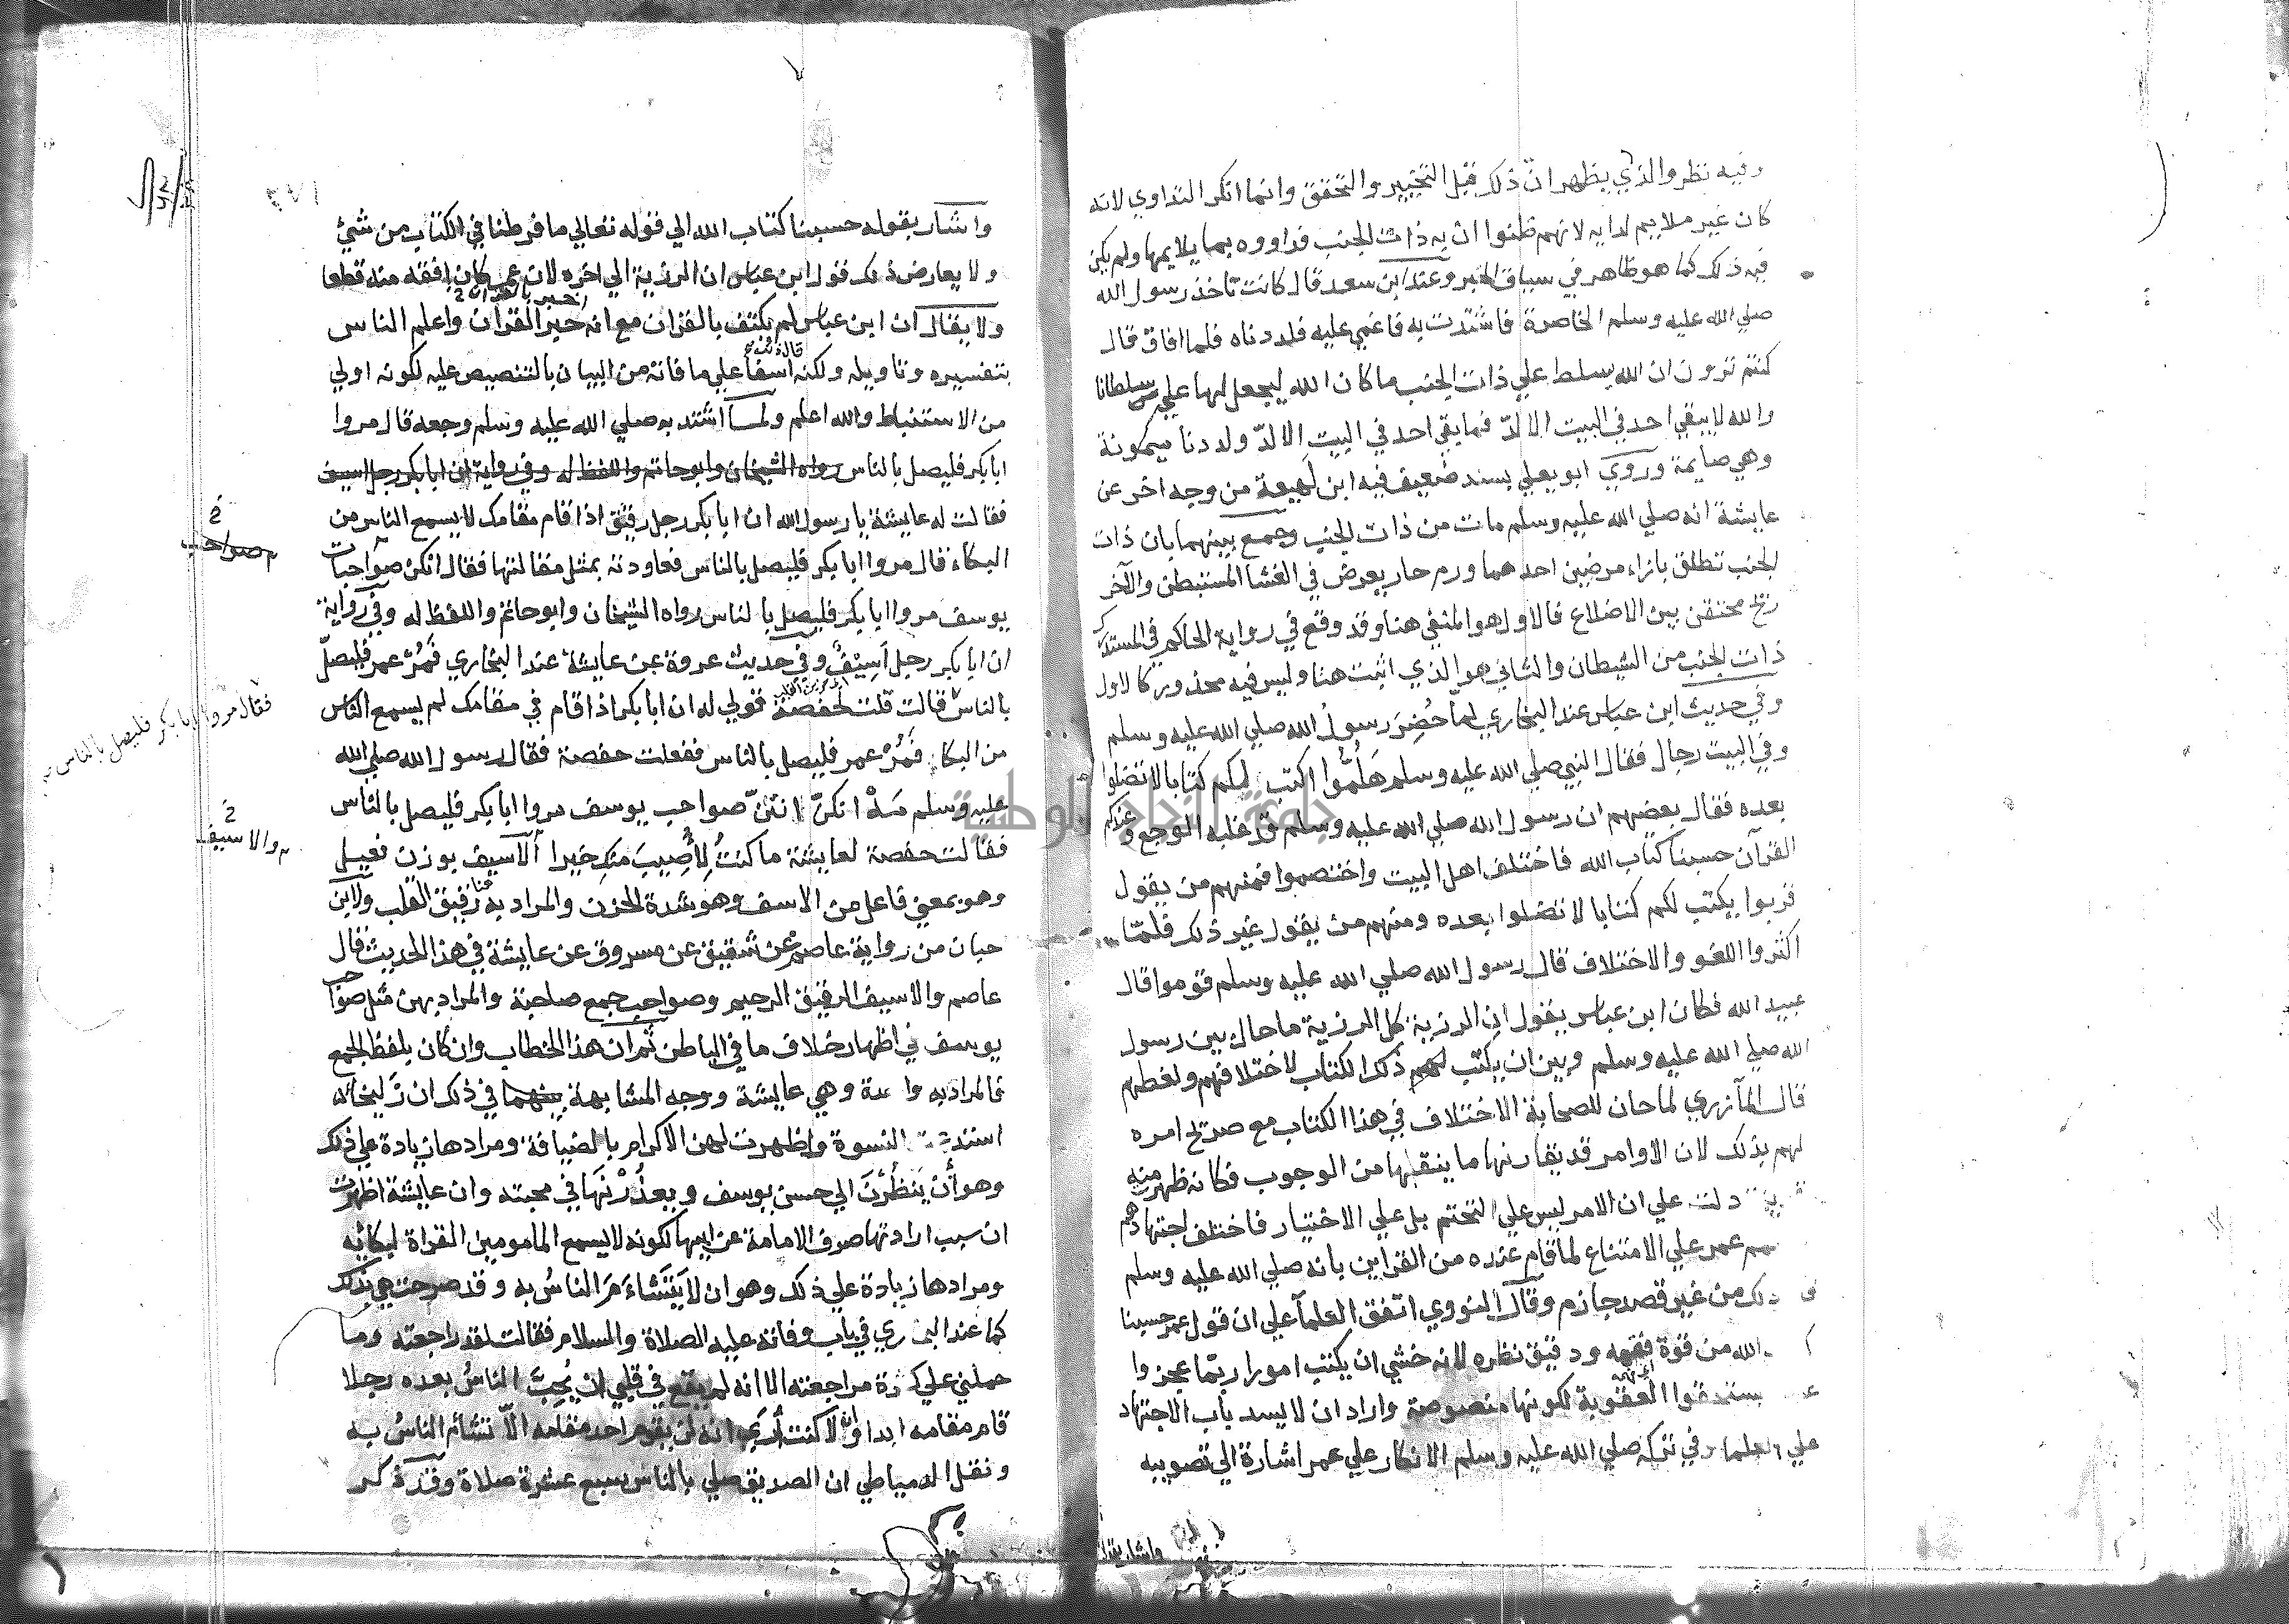 وفيه نظر والذي يظهر ان ذلك قبل التخيير والتحقق وانما انكر التداوي لانه
كان غير ملايم لدايه لانهم ظنوا ان به ذات الجنب فداووه بما يلايمها ولم يكن
فيه ذلك كما هو ظاهر في سياق الخبر وعند ابن سعد قال كانت تاخذ رسول الله
صلي الله عليه وسلم الخاصرة فاشتدت به فاغمي عليه فلددناه فلما افاق قال
كنتم ترون ان الله يسلط علي ذات الجنب ما كان الله ليجعل لها علي سلطانا
والله لا يبقي احد في البيت الا لدّ فما بقي احد في البيت الا لدّ ولددنا ميمونة
وهي صايمة وروي ابو يعلي بسند ضعيف فيه ابن لهيعة من وجه اخر عن
عايشة انه صلي الله عليه وسلم مات من ذات الجنب وجمع بينهما بان ذات
الجنب تطلق بازاء مرضين احدهما ورم حار يعرض في الغشا المستبطن والآخر
ريح محتقن بين الاضلاع فالاول هو المنفي هنا وقد وقع في رواية الحاكم في المستدرك
ذات الجنب من الشيطان والثاني هو الذي اثبت هنا وليس فيه محذور كالاول
وفي حديث ابن عباس عند البخاري لما حُضِرَ رسولُ الله صلي الله عليه وسلم
وفي البيت رجال فقال النبي صلي الله عليه وسلم هَلُمُّوا اكتب لكم كتابا لا تضلوا
بعده فقال بعضهم ان رسول الله صلي الله عليه وسلم قد غلبه الوجع وعندكم
القرآن حسبنا كتاب الله فاختلف اهل البيت واختصموا فمنهم من يقول
قربوا يكتب لكم كتابا لا تضلوا بعده ومنهم من يقول غير ذلك فلمّا
اكثروا اللغو والاختلاف قال رسول الله صلي الله عليه وسلم قوموا قال
عبيد الله فكان ابن عباس يقول ان الرزية كل الرزية ما حال بين رسول
الله صلي الله عليه وسلم وبين ان يكتب لهم ذلك الكتاب لاختلافهم ولغطهم
قال المآزري لما حان للصحابة الاختلاف في هذا الكتاب مع صريح امره
لهم بذلك لان الاوامر قد يقارنها ما ينقلها من الوجوب فكانه ظهر منه
دلت علي ان الامر ليس علي التحتم بل علي الاختيار فاختلف اجتهادهم
عمر علي الامتناع لما قام عنده من القراين بانه صلي الله عليه وسلم
ذلك من غير قصد جازم وقال النووي اتفق العلمآ علي ان قول عمر حسبنا
الله من قوة فقهه ودقيق نظره لانه خشي ان يكتب امورا ربّما عجزوا
يستحقوا العقوبة لكونها منصوصة واراد ان لا يسد باب الاجتهاد
علي العلما وفي تركه صلي الله عليه وسلم الانكار علي عمر اشارة الي تصويبه
واشار بقوله
واشار بقوله حسبنا كتاب الله الي قوله تعالي ما فرطنا في الكتاب من شيْ
ولا يعارض ذلك قول ابن عباس ان الرزية الي اخره لان عمر كان افقه منه قطعا
ولا يقال ان ابن عباس لم يكتف بالقران مع انه حبر القران واعلم الناس
بتفسيره وتاويله ولكنه اسفا علي ما فاته من البيان بالتنصيص عليه لكونه اولي
من الاستنباط والله اعلم ولمّا اشتد به صلي الله عليه وسلم وجعه قال مروا
ابا بكر فليصل بالناس رواه الشيخان وابو حاتم واللفظ له وفي رواية ان ابا بكر رجل اسيف
فقالت له عايشة يا رسول الله ان ابا بكر رجل رقيق اذا قام مقامك لا يسمع الناس من
البكاء قال مروا ابا بكر فليصل بالناس فعاودته بمثل مقالتها فقال انكن صواحبات
يوسف مروا ابا بكر فليصل بالناس رواه الشيخان وابو حاتم واللفظ له وفي رواية
ان ابا بكر رجل اَسِيْفٌ وفي حديث عروة عن عايشة عند البخاري فَمُرْ عمر فليصلّ
بالناس قالت قلت لحفصة قولي له ان ابا بكر اذا قام في مقامك لم يسمع الناس
من البكا فَمُرْ عمر فليصل بالناس ففعلت حفصة فقال رسول الله صلي الله
عليه وسلم مَهْ انكنّ لانتنّ صواحب يوسف مروا ابا بكر فليصل بالناس
فقالت حفصة لعايشة ما كنتُ لِأُصِيبَ منكِ خيرا الآسيف بوزن فعيل
وهو بمعني فاعل من الاسف وهو شدة الحزن والمراد به هنا رقيق القلب ولابن
حبان من رواية عاصم عن شقيق عن مسروق عن عايشة في هذا الحديث قال
عاصم والاسيف الرقيق الرحيم وصواحب جمع صاحبة والمراد بهن مثل صواحب
يوسف في اظهار خلاف ما في الباطن ثم ان هذا الخطاب وان كان بلفظ الجمع
فالمراد به واحدة وهي عايشة ووجه المشابهة بينهما في ذلك ان زليخا
استدعت النسوة واظهرت لهن الاكرام بالضيافة ومرادها زيادة علي ذلك
وهو أن يَنظُرْنَ الي حسن يوسف ويعذُرْنَها في محبته وان عايشة اظهرت
ان سبب ارادتها صرف الامامة عن ابيها لكونه لا يسمع المامومين القراة لبكائه
ومرادها زيادة علي ذلك وهو ان لا يَتَشَاءَمَ الناسُ به وقد صرحت هي بذلك
كما عند البخاري في باب وفاته عليه الصلاة والسلام فقالت لقد راجعته وما
حملني علي كثرة مراجعته الا انه لم يقع في قلبي ان يُحِبَّ الناسُ بعده رجلا
قام مقامه ابدا ولا كنت أري انه لن يقوم احد مقامه الّا تشائم الناسُ به
ونقل الدمياطي ان الصديق صلي بالناس سبع عشرة صلاة وقد ذكر
صواحب
فقال مروا ابا بكر فليصل بالناس
والاسيف
جامعة النجاح الوطنية